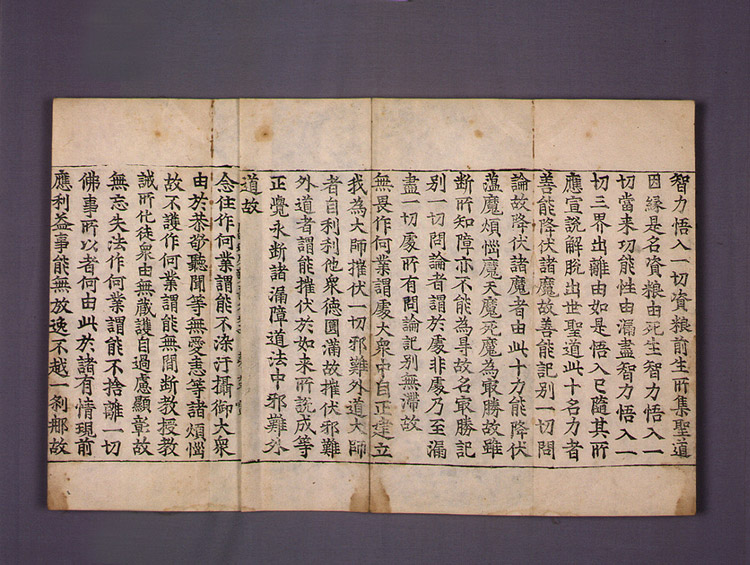 智力悟入一切資粮前生所集聖道
因緣是名資粮由死生智力悟入一
切當来功能性由漏盡智力悟入一
切三界出離由如是悟入已隨其所
應宣說解脫出世聖道此十名力者
善能降伏諸魔故善能記別一切問
論故降伏諸魔者由此十力能降伏
蘊魔煩惱魔天魔死魔為㝡勝故雖
断所知障亦不能為㝵故名㝡勝記
別一切問論者謂於處非處乃至漏
盡一切處所有問論記別無滯故
無畏作何業謂處大衆中自正建立
我為大師摧伏一切邪難外道大師
者自利利他衆德圓滿故摧伏邪難
外道者謂能摧伏於如来所說成等
正覺永断諸漏障道法中邪難外
道故
念住作何業謂能不染汙攝御大衆
由於恭敬聽聞等無愛恚等諸煩惱
故不護作何業謂能無間断教授教
誡所化徒衆由無蔵護自過慮顯彰故
無忘失法作何業謂能不捨離一切
佛事所以者何由此於諸有情現前
應利益事能無放逸不越一刹那故